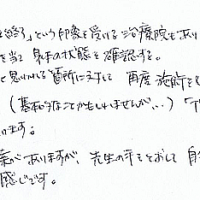 」という印象を受ける治療院もあり
を当て 身体の状態を確認する。
と思われる箇所に対して 再度 施術を
(基本的なことかもしれませんが…)「
います。
葉がありますが、先生の手をとおして 自
感じです。